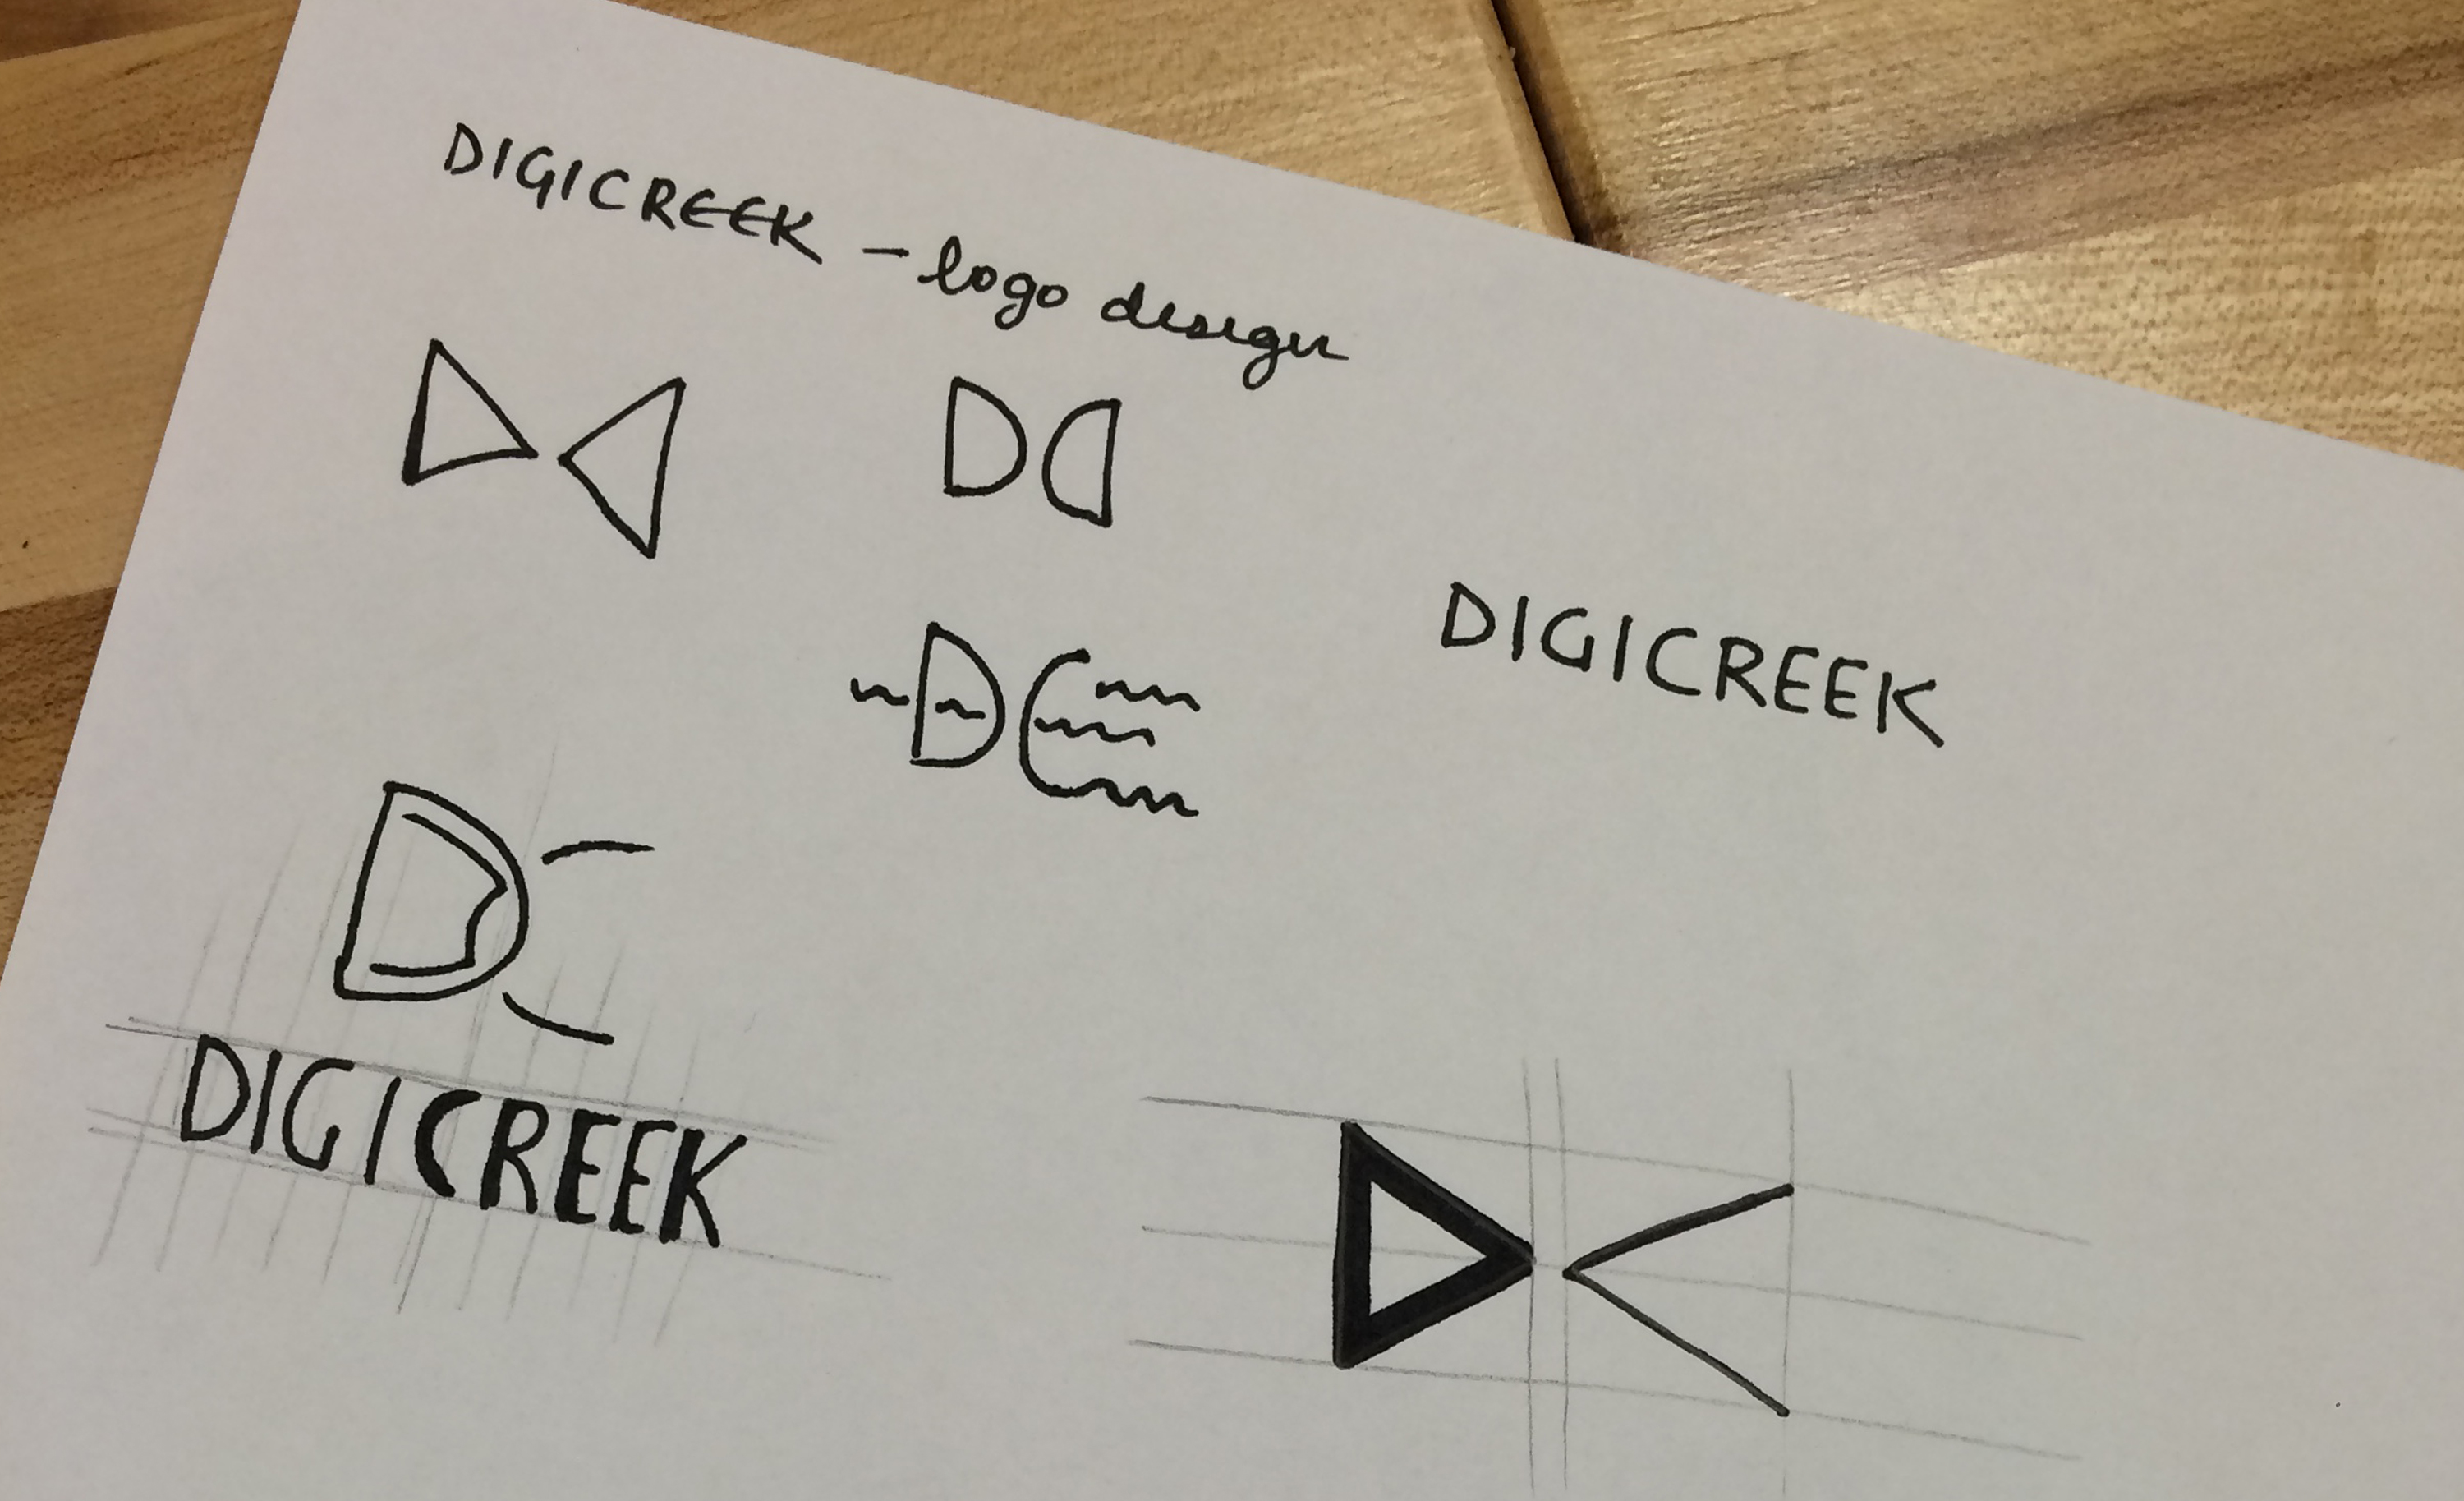 DIGICREEK - logo design
DC
DIGICREEK
DC
DC
DIGICREEK